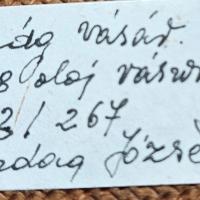 ág vásár.
s olaj vásár
3/267
rdag Józse